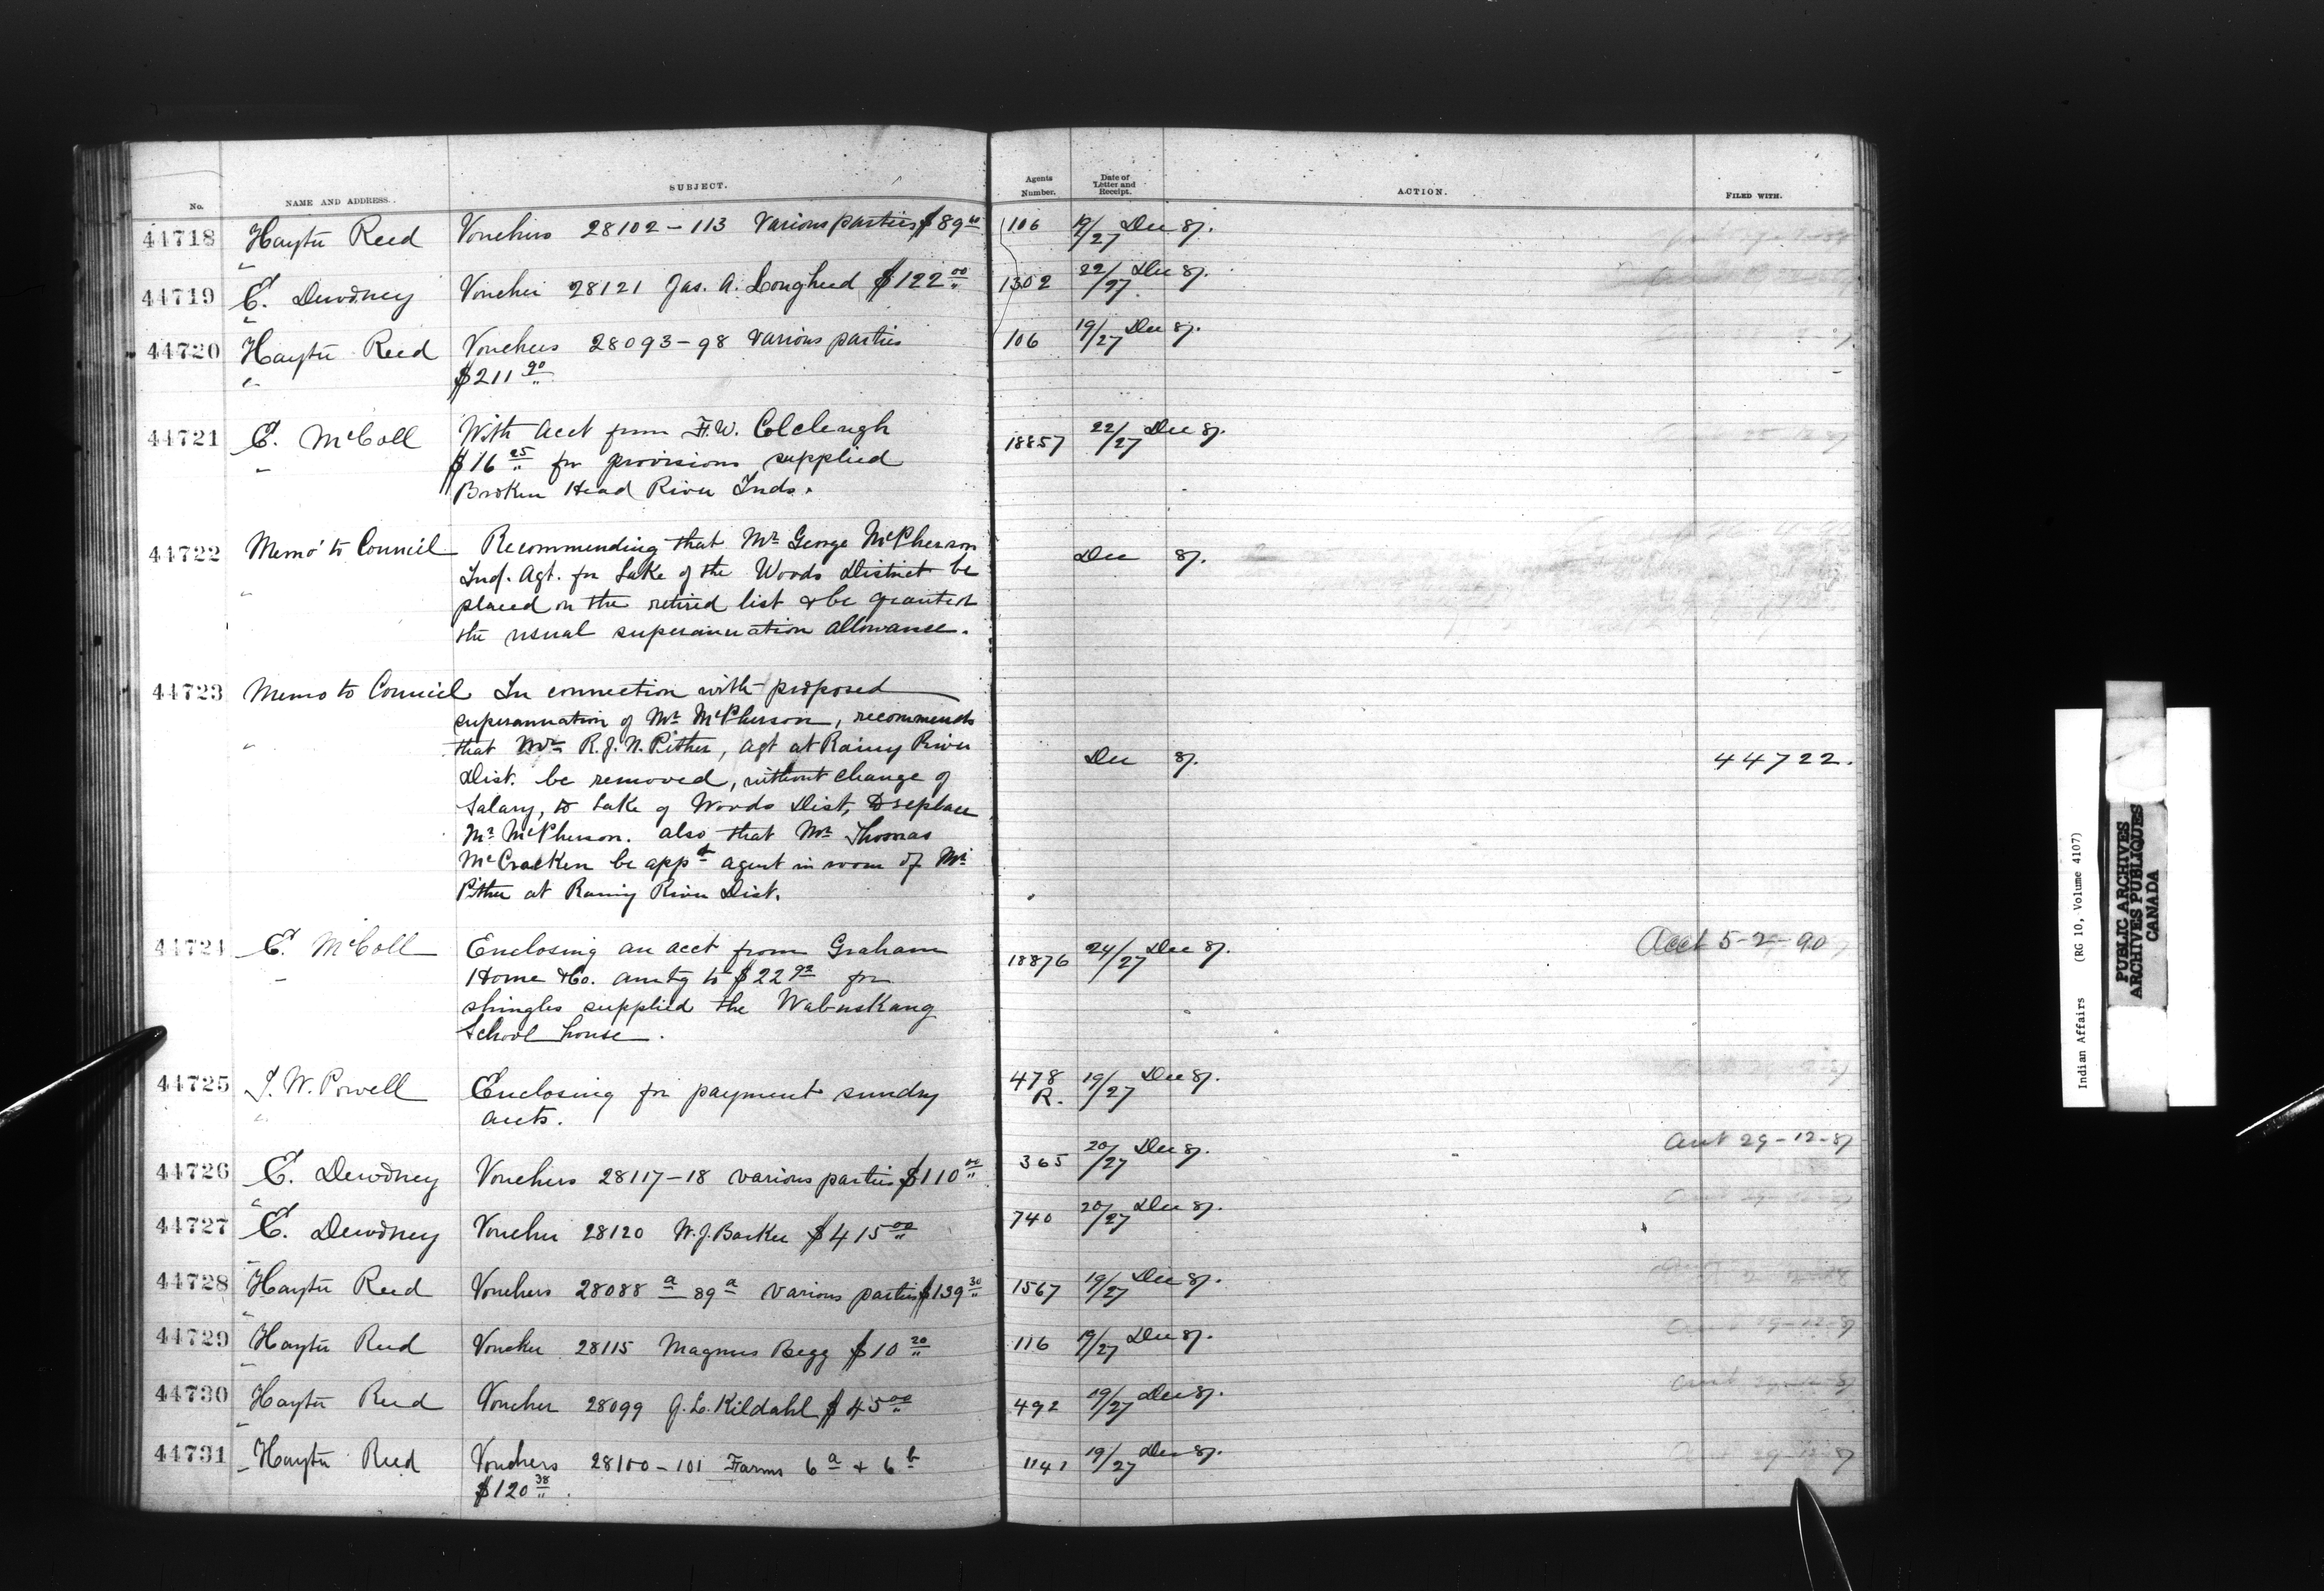 No. NAME AND ADDRESS. SUBJECT. Agents Number. Date of Letter and Receipt. ACTION. FILED WITH.
44718 Hayter Reed Vouchers 28102-113 Various parties $89 106 19/27 Dec 87.
44719 E. Dewdney Voucher 28121 Jas. A. Lougheed $122 00 1302 22/27 Dec 87.
44720 Hayter Reed Vouchers 28093-98 Various parties 106 19/27 Dec 87.
" $211 90
44721 E. McColl With acct from F.W. Colcleugh 18857 22/27 Dec 87.
" $16 25 for provisions supplied
Broken Head River Inds.
44722 Memo to Council Recommending that Mr George McPherson Dec 87.
Ind. Agt. for Lake of the Woods District be
" placed on the retired list & be granted
the usual superannuation allowance.
44723 Memo to Council In connection with proposed
superannuation of Mr McPherson, recommends
" that Mr R.J.N. Pither, agt at Rainy River Dec 87. 44722.
Dist. be removed, without change of
Salary, to Lake of Woods Dist, to replace
Mr McPherson. also that Mr Thomas
McCracken be appd agent in room of Mr
Pither at Rainy River Dist.
44724 E. McColl Enclosing an acct from Graham 18876 24/27 Dec 87. Acct 5-2-90
" Horne & Co. amtg to $22 92 for
shingles supplied the Wabuskang
School house.
44725 I. W. Powell Enclosing for payment sundry 478 R. 19/27 Dec 87.
" accts.
44726 E. Dewdney Vouchers 28117-18 various parties $110 00 365 20/27 Dec 87. acct 29-12-87
44727 E. Dewdney Voucher 28120 W.J. Barker $415 00 740 20/27 Dec 87.
44728 Hayter Reed Vouchers 28088 a - 89 a Various parties $139 30 1567 19/27 Dec 87.
44729 Hayter Reed Voucher 28115 Magnus Begg $10 20 116 19/27 Dec 87.
44730 Hayter Reed Voucher 28099 J.L. Kildahl $45 00 492 19/27 Dec 87.
44731 Hayter Reed Vouchers 28100-101 Farms 6 a & 6 b 1141 19/27 Dec 87.
$120 38
Indian Affairs (RG 10, Volume 4107)
PUBLIC ARCHIVES
ARCHIVES PUBLIQUES
CANADA